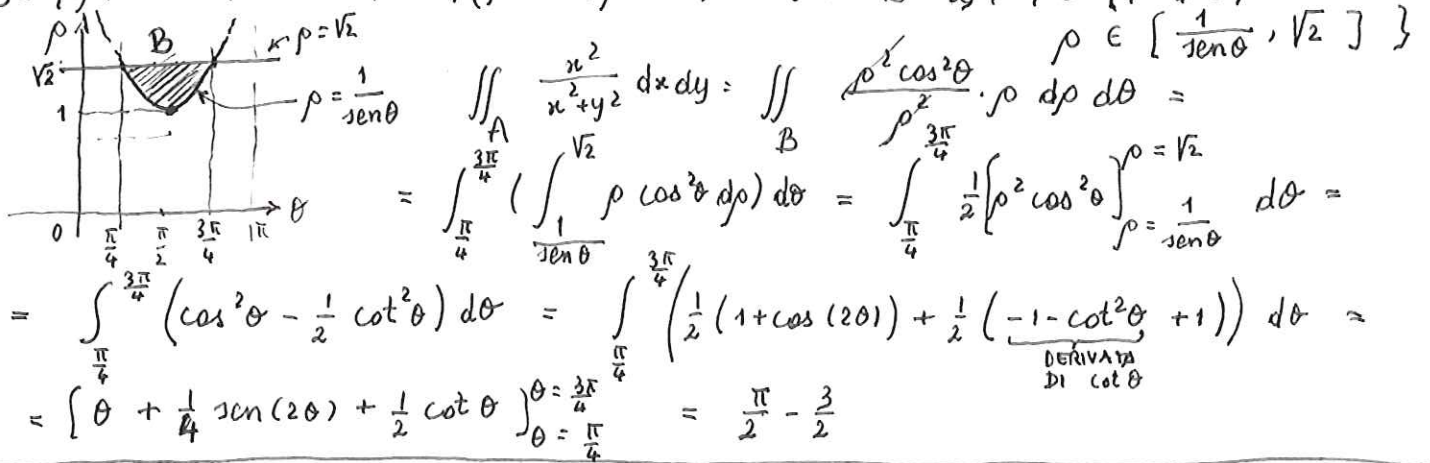 ρ ∈ [ 1/senθ , √2 ] }
ρ B ρ = √2
√2 1 ρ = 1/senθ
0 π/4 π/2 3π/4 π θ
∬_A x²/(x²+y²) dx dy = ∬_B ρ² cos²θ/ρ² · ρ dρ dθ =
= ∫_{π/4}^{3π/4} ( ∫_{1/senθ}^{√2} ρ cos²θ dρ ) dθ = ∫_{π/4}^{3π/4} 1/2 [ρ² cos²θ]_{ρ = 1/senθ}^{ρ = √2} dθ =
= ∫_{π/4}^{3π/4} (cos²θ - 1/2 cot²θ) dθ = ∫_{π/4}^{3π/4} ( 1/2 (1+cos(2θ)) + 1/2 (-1-cot²θ +1) ) dθ =
DERIVATA
DI cot θ
= [ θ + 1/4 sen(2θ) + 1/2 cot θ ]_{θ = π/4}^{θ = 3π/4} = π/2 - 3/2